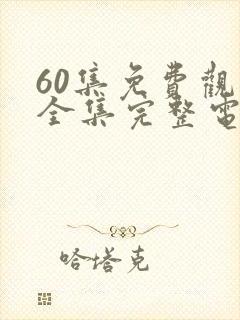 60集免費觀
全集完整電
哈塔克